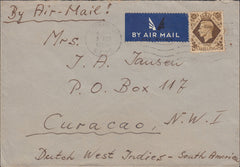 By Air-Mail!
BY AIR MAIL
Mrs.
J. A. Jansen
P. O. Box 117
Curacao, N.W.I
Dutch West Indies - South America